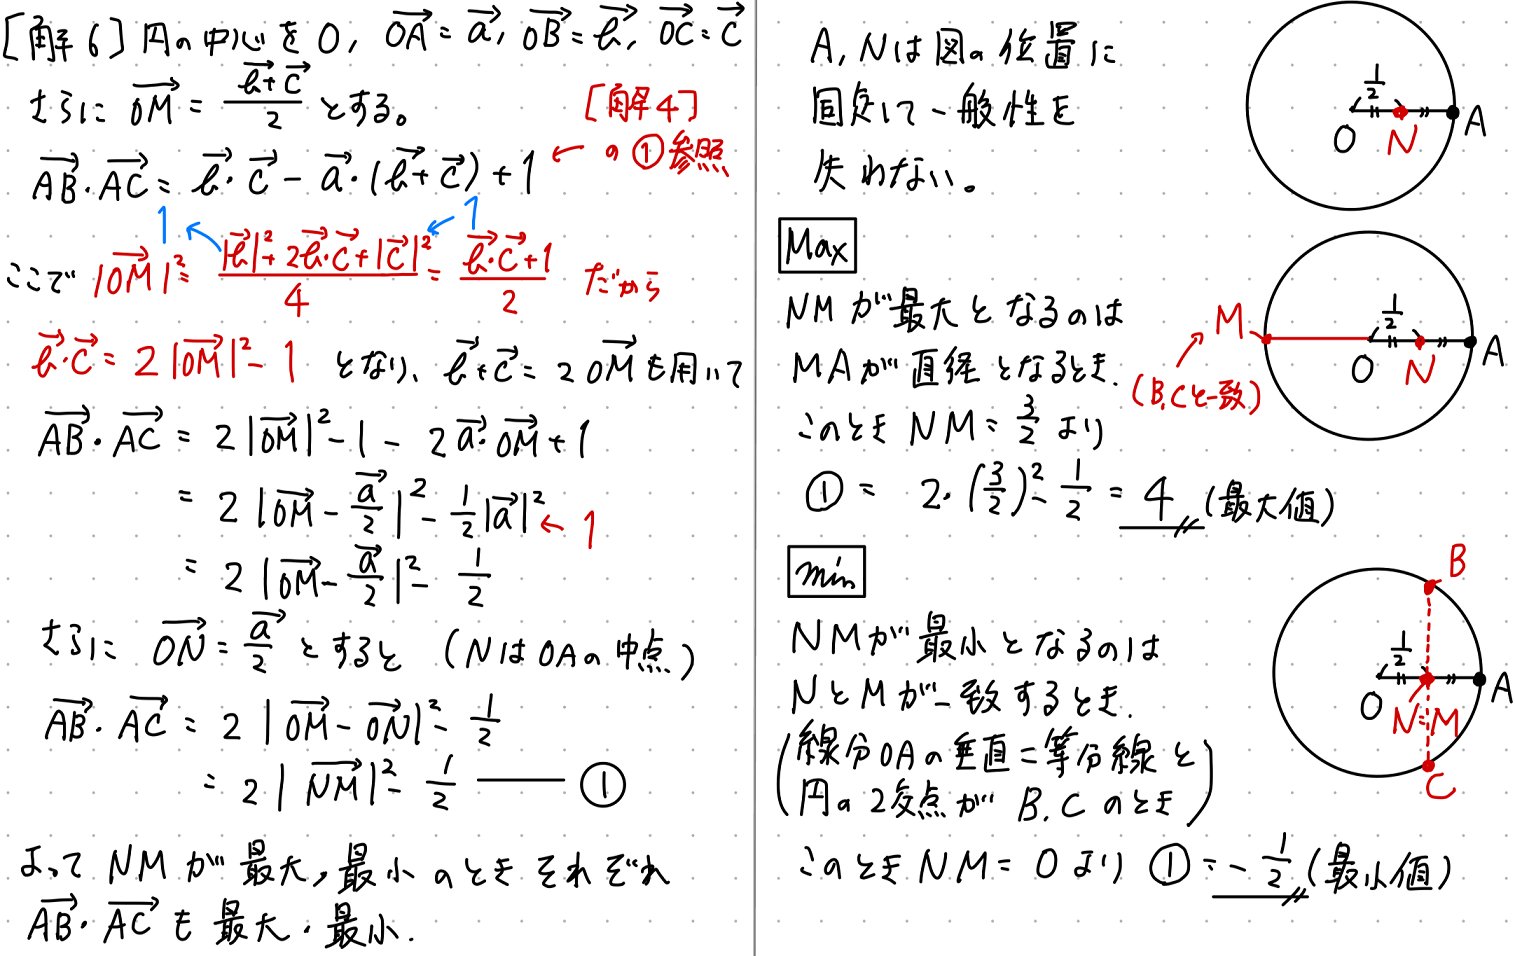 [解6] 円の中心を O, $\overrightarrow{OA}=\vec{a}$, $\overrightarrow{OB}=\vec{b}$, $\overrightarrow{OC}=\vec{c}$
さらに $\overrightarrow{OM}=\frac{\vec{b}+\vec{c}}{2}$ とする。
$\overrightarrow{AB}\cdot\overrightarrow{AC}=\vec{b}\cdot\vec{c}-\vec{a}\cdot(\vec{b}+\vec{c})+1$ ← [解4]
の①参照
1 1
ここで $|\overrightarrow{OM}|^2=\frac{|\vec{b}|^2+2\vec{b}\cdot\vec{c}+|\vec{c}|^2}{4}=\frac{\vec{b}\cdot\vec{c}+1}{2}$ だから
$\vec{b}\cdot\vec{c}=2|\overrightarrow{OM}|^2-1$ となり、$\vec{b}+\vec{c}=2\overrightarrow{OM}$ を用いて
$\overrightarrow{AB}\cdot\overrightarrow{AC}=2|\overrightarrow{OM}|^2-1-2\vec{a}\cdot\overrightarrow{OM}+1$
$=2|\overrightarrow{OM}-\frac{\vec{a}}{2}|^2-\frac{1}{2}|\vec{a}|^2$ ← 1
$=2|\overrightarrow{OM}-\frac{\vec{a}}{2}|^2-\frac{1}{2}$
さらに $\overrightarrow{ON}=\frac{\vec{a}}{2}$ とすると (NはOAの中点)
$\overrightarrow{AB}\cdot\overrightarrow{AC}=2|\overrightarrow{OM}-\overrightarrow{ON}|^2-\frac{1}{2}$
$=2|\overrightarrow{NM}|^2-\frac{1}{2}$ ―― ①
よって NM が最大, 最小のときそれぞれ
$\overrightarrow{AB}\cdot\overrightarrow{AC}$ も最大・最小.
A, Nは図の位置に
固定して一般性を
失わない。
$\frac{1}{2}$
O N A
Max
NM が最大となるのは
MAが直径となるとき.
このとき NM = $\frac{3}{2}$ より
① = $2\cdot(\frac{3}{2})^2-\frac{1}{2}=4$ (最大値)
M
(B,Cと一致)
$\frac{1}{2}$
O N A
min
NMが最小となるのは
NとMが一致するとき.
(線分OAの垂直二等分線と
円の2交点が B, C のとき)
このとき NM = 0 より ① = $-\frac{1}{2}$ (最小値)
B
$\frac{1}{2}$
O N=M A
C